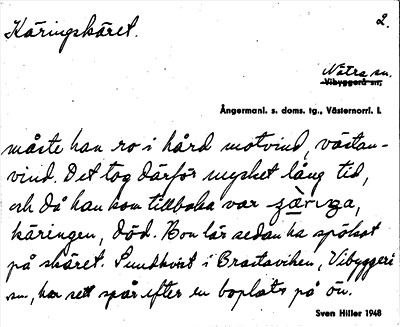 Käringskäret. 2.
Nätra sn.
Vibyggerå sn.
Ångermanl. s. doms. tg., Västernorrl. l.
måste han ro i hård motvind, västan-
vind. Det tog därför mycket lång tid,
och då han kom tillbaka var
käringen, död. Hon lär sedan ha spökat
på skäret. Sundkvist i Brastaviken, Vibyggerå
sn, har sett spår efter en boplats på ön.
Sven Hiller 1948